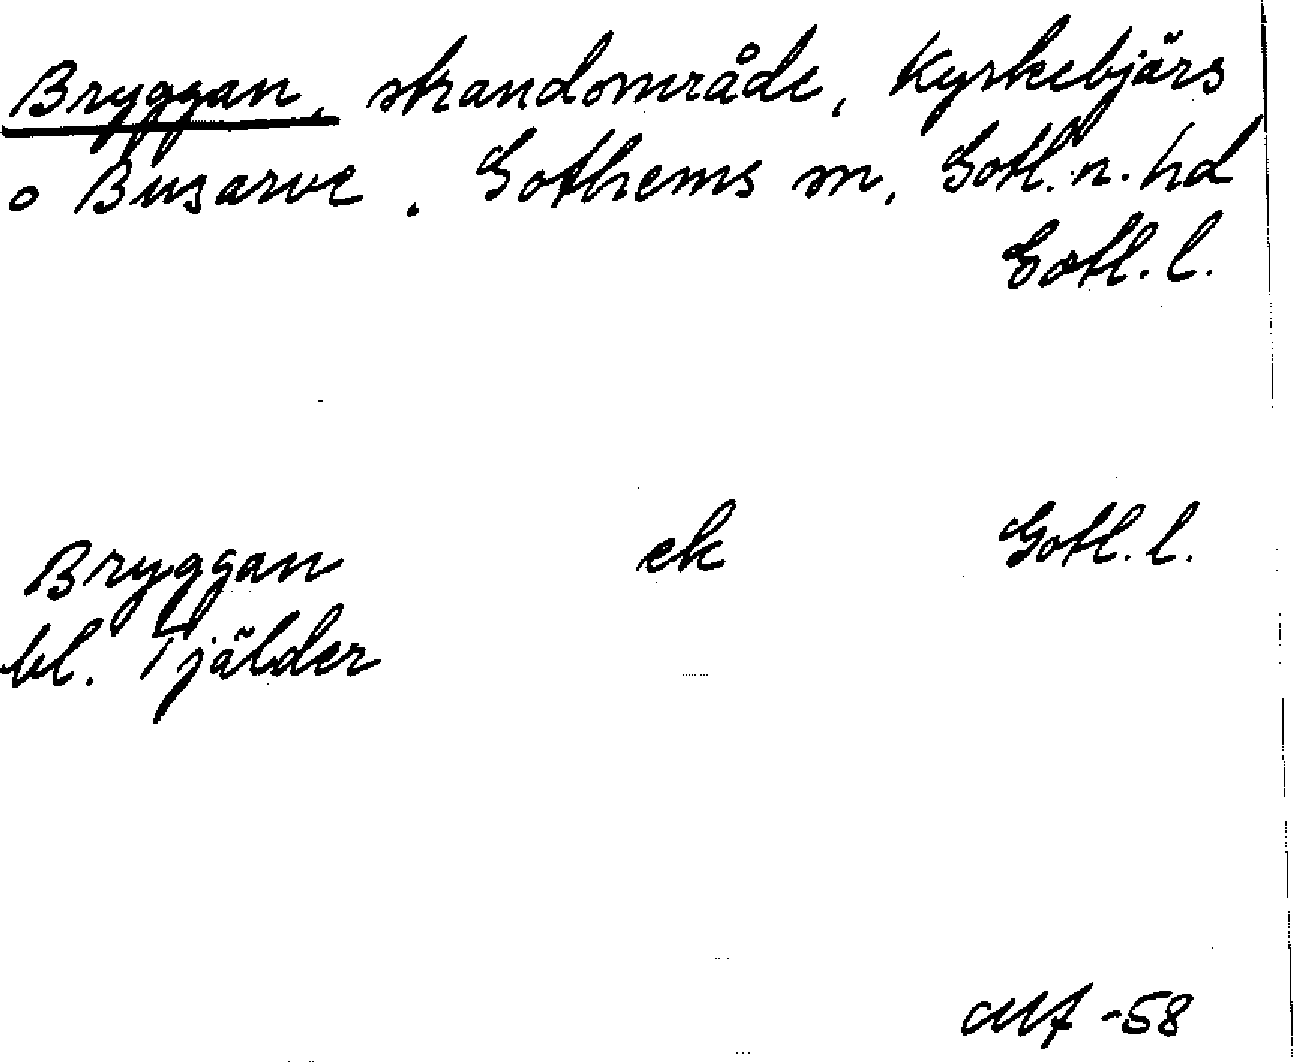 Bryggan, strandområde, Kyrkebjärs
o Busarve. Gothems sn, Gotl. n. hd
Gotl. l.
Bryggan ek Gotl. l.
bl. Tjälder
-58